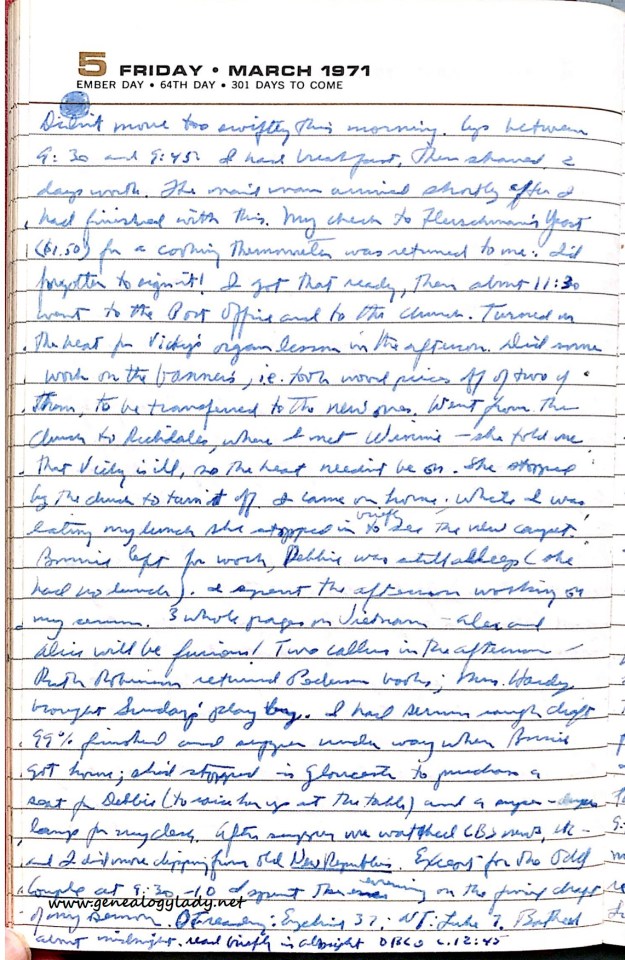 5 FRIDAY • MARCH 1971
EMBER DAY • 64TH DAY • 301 DAYS TO COME
Didn't move too swiftly this morning. Up between
9:30 and 9:45. I had breakfast, then shaved 2
days worth. The mail man arrived shortly after I
had finished with this. My check to Fleischman's Yeast
($1.50) for a cooking thermometer was returned to me: I'd
forgotten to sign it! I got that ready, then about 11:30
went to the Post Office and to the church. Turned on
the heat for Vicky's organ lesson in the afternoon. Did some
work on the banners, i.e. took wood pieces off of two of
them, to be transferred to the new ones. Went from the
church to Richdales, where I met Winnie – she told me
that Vicky is ill, so the heat needn't be on. She stopped
by the church to turn it off. I came on home. While I was
eating my lunch she stopped in briefly to see the new carpet.
Bonnie left for work, Debbie was still asleep (she
had no lunch). I spent the afternoon working on
my sermon. 3 whole pages on Vietnam – Alex and
Alice will be furious! Two callers in the afternoon –
Ruth Robinson returned books; Mrs. Hardy
brought Sunday's play. I had sermon rough draft
99% finished and supper under way when Bonnie
got home; she'd stopped in Gloucester to purchase a
seat for Debbie (to raise her up at the table) and a
lamp for my desk. After supper we watched CBS news, etc –
and I did more clipping from old New Republics. Except for the Odd
Couple at 9:30–10 I spent the evening on the final draft
of my sermon. OT reading: Ezekiel 37; NT: Luke 7. Bathed
about midnight. read briefly in Albright 12:45
www.genealogylady.net